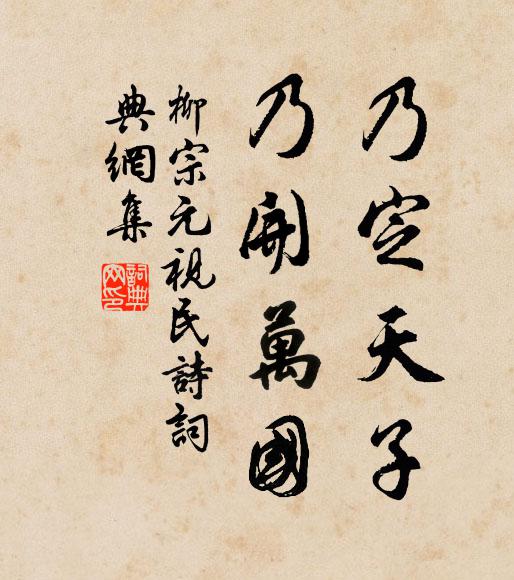 乃定天子
乃開萬國
柳宗元視民詩詞
典網集
詞典網印